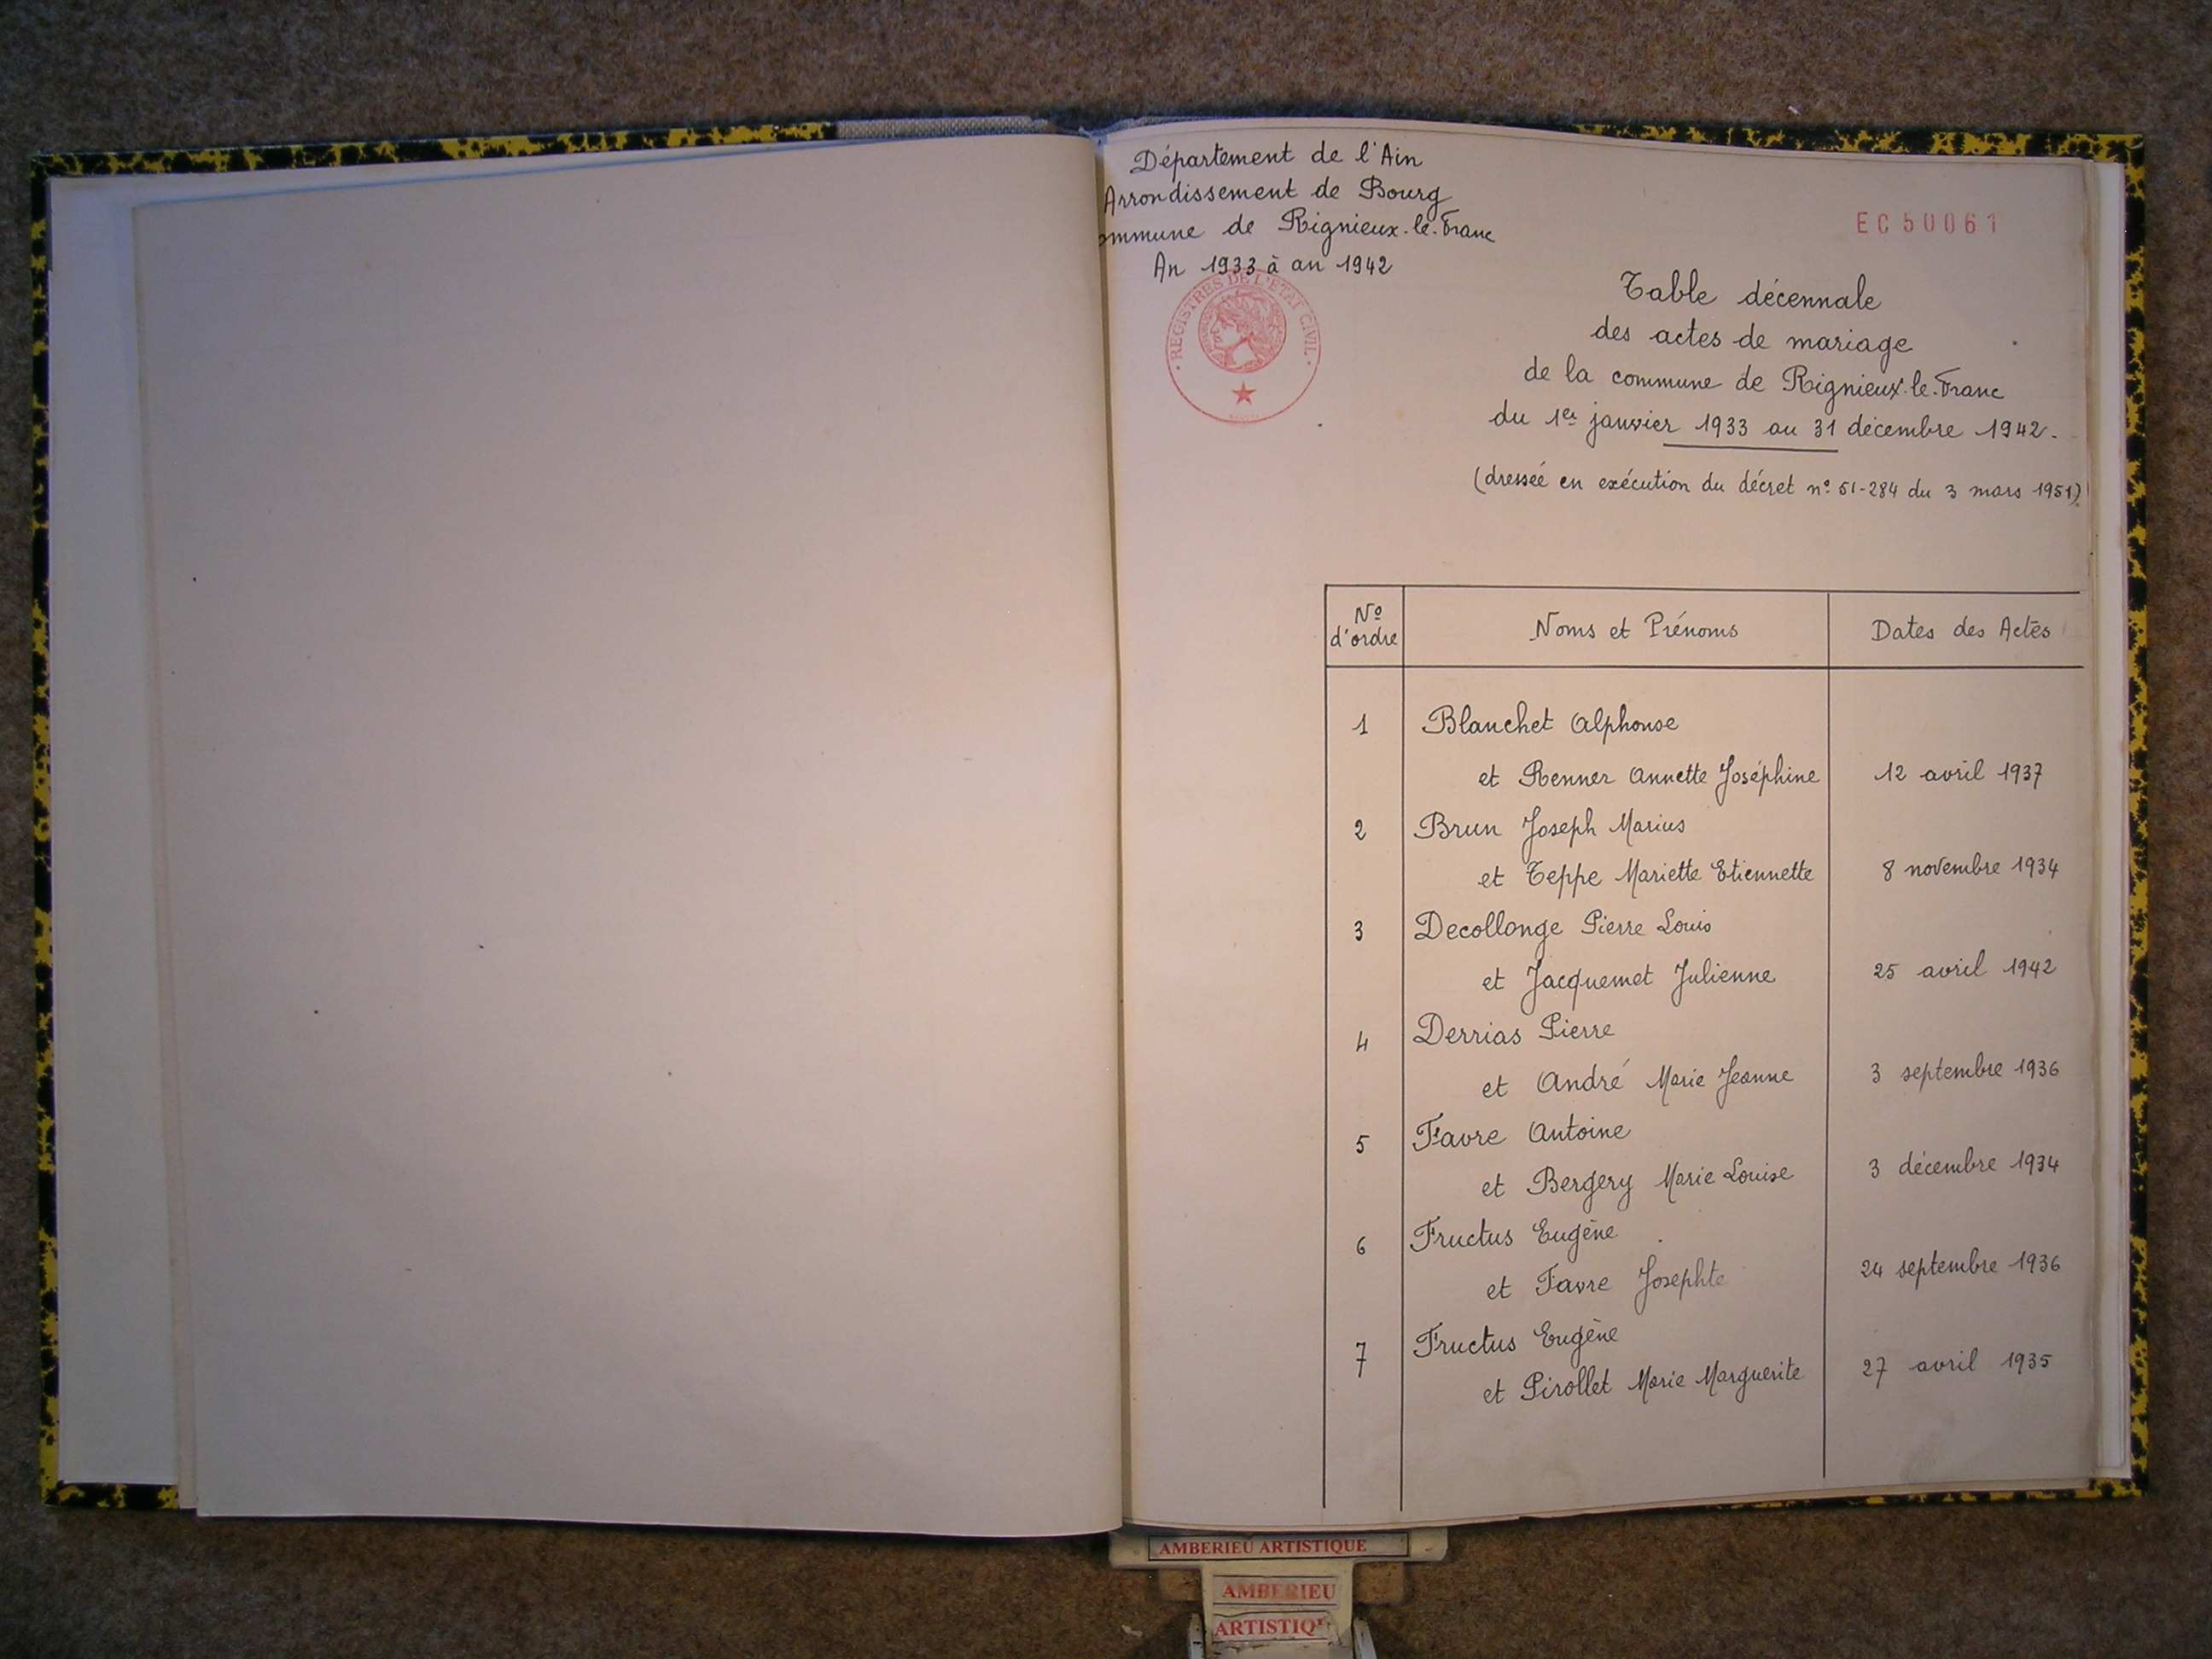 Département de l'Ain
Arrondissement de Bourg
ommune de Rignieux-le-Franc
An 1933 à an 1942
REGISTRES DE L'ETAT CIVIL
EC 50061
Table décennale
des actes de mariage
de la commune de Rignieux-le-Franc
du 1er janvier 1933 au 31 décembre 1942.
(dressée en exécution du décret n° 51-284 du 3 mars 1951).
Nº d'ordre Noms et Prénoms Dates des Actes
1 Blanchet Alphonse
et Renner Annette Joséphine 12 avril 1937
2 Brun Joseph Marius
et Teppe Mariette Etiennette 8 novembre 1934
3 Decollonge Pierre Louis
et Jacquemet Julienne 25 avril 1942
4 Derrias Pierre
et André Marie Jeanne 3 septembre 1936
5 Favre Antoine
et Bergery Marie Louise 3 décembre 1934
6 Fructus Eugène
et Favre Josephte 24 septembre 1936
7 Fructus Eugène
et Pirollet Marie Marguerite 27 avril 1935
AMBERIEU ARTISTIQUE
AMBERIEU
ARTISTIQU